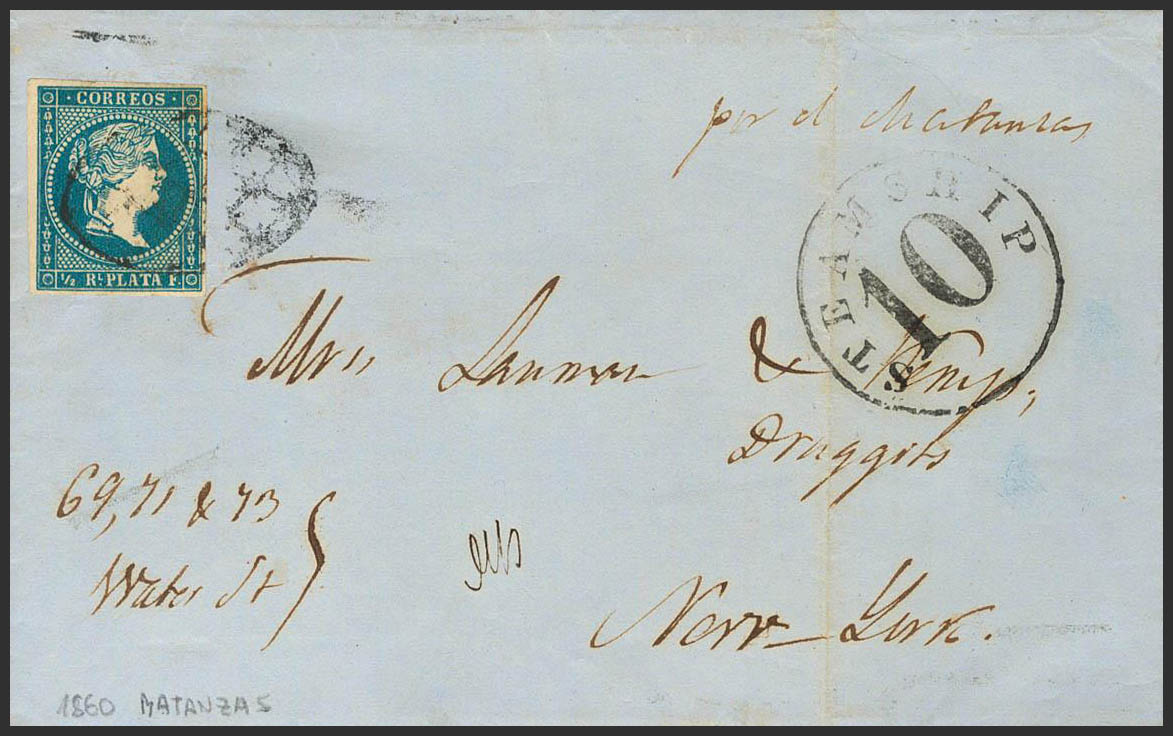 CORREOS
½ RL PLATA F.
por el Matanzas
STEAMSHIP
10
Mrss Lanman & Kemp,
Druggits
69, 71 & 73
Water St
New York.
1860 MATANZAS